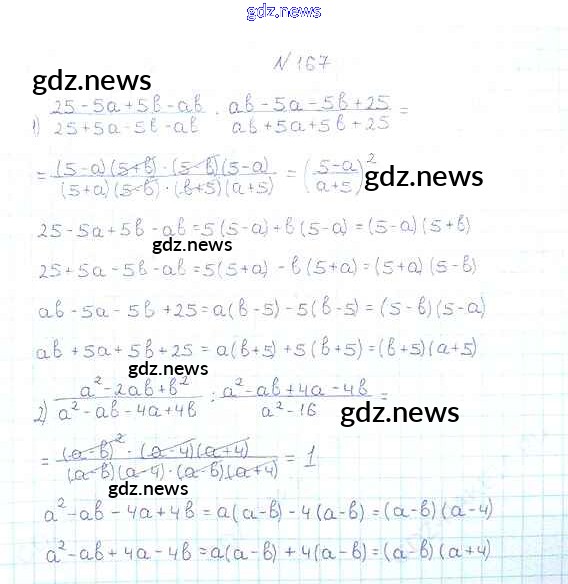 gdz.news
N 167
gdz.news
1) (25-5a+5в-aв)/(25+5a-5в-aв) · (aв-5a-5в+25)/(aв+5a+5в+25) =
= ((5-a)(5+в)·(5-в)(5-a))/((5+a)(5-в)·(в+5)(a+5)) = ((5-a)/(a+5))² gdz.news
25-5a+5в-aв=5(5-a)+в(5-a)=(5-a)(5+в)
gdz.news
25+5a-5в-aв=5(5+a)-в(5+a)=(5+a)(5-в)
aв-5a-5в+25=a(в-5)-5(в-5)=(5-в)(5-a)
aв+5a+5в+25=a(в+5)+5(в+5)=(в+5)(a+5)
gdz.news
2) (a²-2aв+в²)/(a²-aв-4a+4в) : (a²-aв+4a-4в)/(a²-16) =
gdz.news
= ((a-в)²·(a-4)(a+4))/((a-в)(a-4)·(a-в)(a+4)) = 1
gdz.news
a²-aв-4a+4в=a(a-в)-4(a-в)=(a-в)(a-4)
a²-aв+4a-4в=a(a-в)+4(a-в)=(a-в)(a+4)